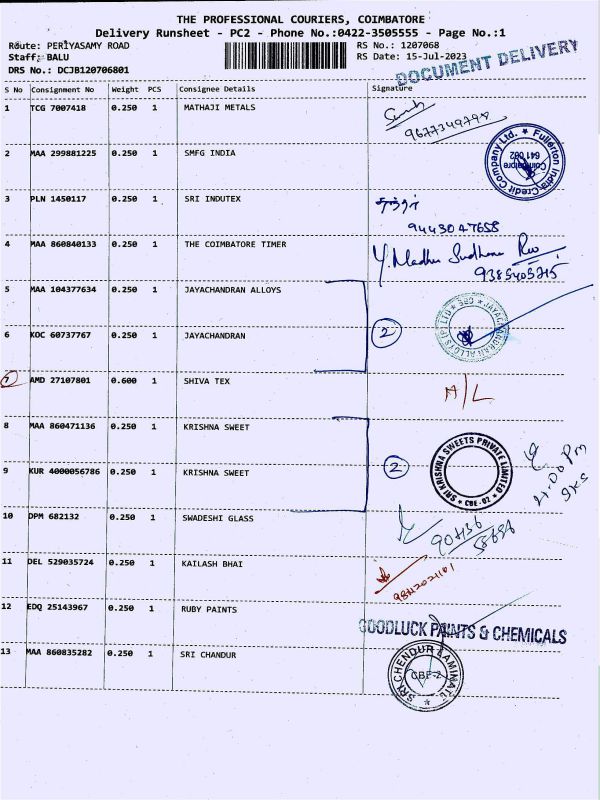 THE PROFESSIONAL COURIERS, COIMBATORE
Delivery Runsheet - PC2 - Phone No.:0422-3505555 - Page No.:1
Route: PERIYASAMY ROAD RS No.: 1207068
Staff: BALU RS Date: 15-Jul-2023
DRS No.: DCJB120706801
DOCUMENT DELIVERY
S No Consignment No Weight PCS Consignee Details Signature
1 TCG 7007418 0.250 1 MATHAJI METALS
9677349798
2 MAA 299881225 0.250 1 SMFG INDIA
Fullerton India Credit Company Ltd. Coimbatore 641 002
3 PLN 1450117 0.250 1 SRI INDUTEX
9443047658
4 MAA 860840133 0.250 1 THE COIMBATORE TIMER
Y. Madhu Sudhana Rao
9385405715
5 MAA 104377634 0.250 1 JAYACHANDRAN ALLOYS
2
JAYACHANDRAN ALLOYS (P) LTD
6 KOC 60737767 0.250 1 JAYACHANDRAN
7 AMD 27107801 0.600 1 SHIVA TEX
A/L
8 MAA 860471136 0.250 1 KRISHNA SWEET
2
SRI KRISHNA SWEETS PRIVATE LIMITED CBE-02
9 KUR 4000056786 0.250 1 KRISHNA SWEET
10 DPM 682132 0.250 1 SWADESHI GLASS
11 DEL 529035724 0.250 1 KAILASH BHAI
12 EDQ 25143967 0.250 1 RUBY PAINTS
GOODLUCK PAINTS & CHEMICALS
13 MAA 860835282 0.250 1 SRI CHANDUR
SRI CHENDUR LAMINATE CBE-2